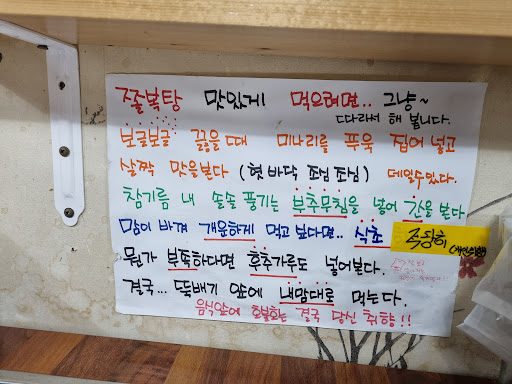 졸복탕 맛있게 먹으려면.. 그냥~
따라서 해 봅니다.
보글보글 끓을때 미나리를 푸욱 집어 넣고
살짝 맛을본다 (혓바닥 조심조심) 데일수있다.
참기름 내 솔솔 풍기는 부추무침을 넣어 간을 본다
맘이 바껴 개운하게 먹고 싶다면.. 식초 적당히
뭔가 부족하다면 후추가루도 넣어본다.
결국... 뚝배기 안에 내맘대로 먹는다.
음식앞에 호불호는 결국 당신 취향!!